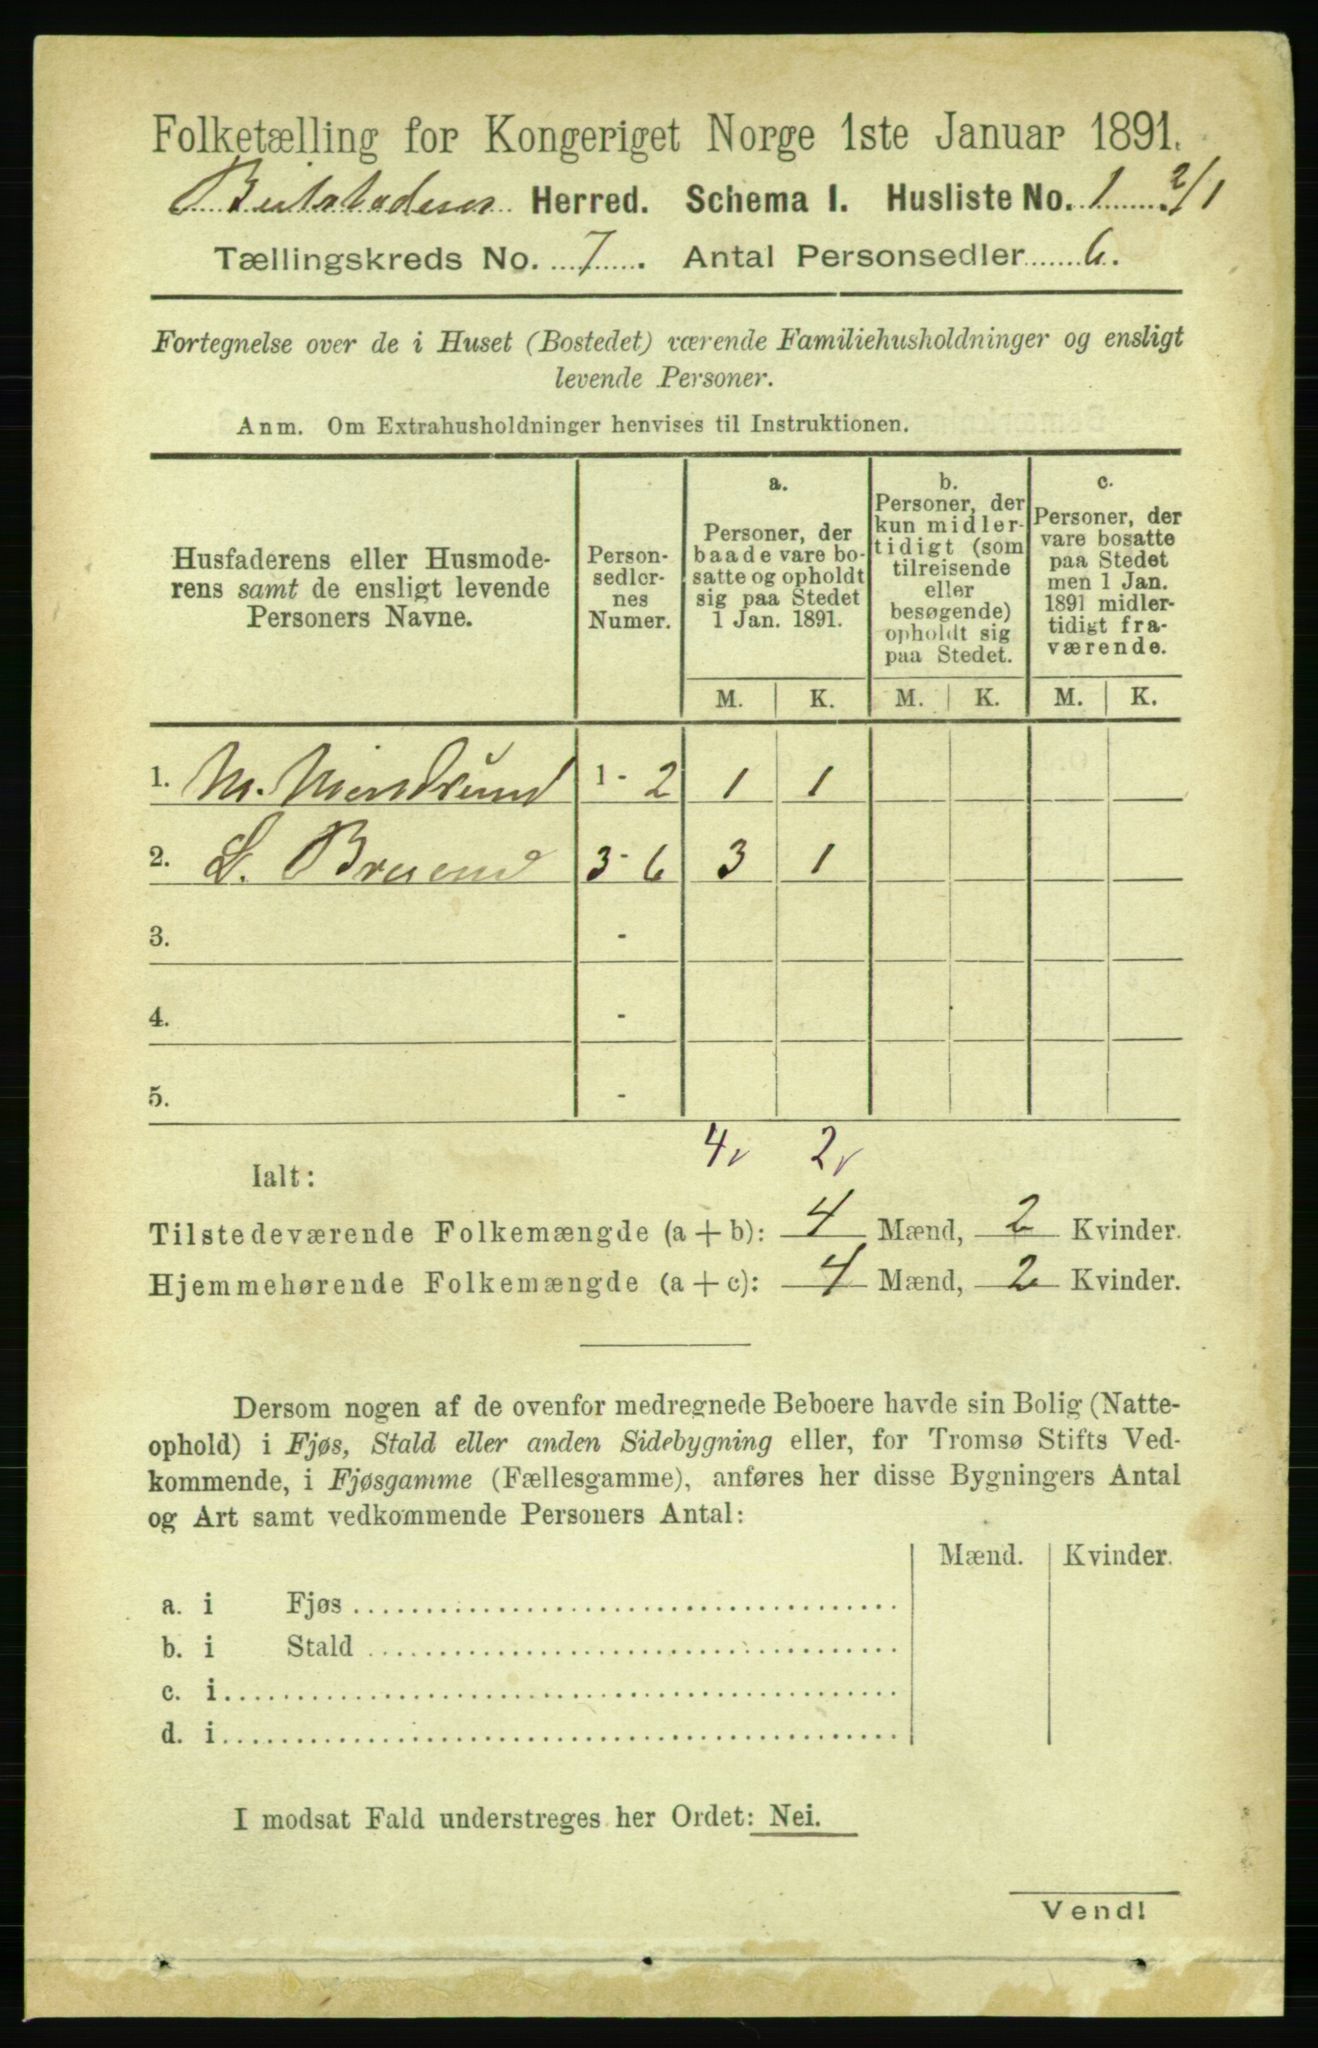 Folketælling for Kongeriget Norge 1ste Januar 1891.
Beitstadens Herred. Schema I. Husliste No. 1 2/1
Tællingskreds No. 7. Antal Personsedler 6.
Fortegnelse over de i Huset (Bostedet) værende Familiehusholdninger og ensligt
levende Personer.
Anm. Om Extrahusholdninger henvises til Instruktionen.
Husfaderens eller Husmode-
rens samt de ensligt levende
Personers Navne.
Person-
sedler-
nes
Numer.
a.
Personer, der
baade vare bo-
satte og opholdt
sig paa Stedet
1 Jan. 1891.
b.
Personer, der
kun midler-
tidigt (som
tilreisende
eller
besøgende)
opholdt sig
paa Stedet.
c.
Personer, der
vare bosatte
paa Stedet
men 1 Jan.
1891 midler-
tidigt fra-
værende.
M. K. M. K. M. K.
1. M. 1 - 2 1 1
2. L. 3 - 6 3 1
3. -
4. -
5. -
4 2
Ialt:
Tilstedeværende Folkemængde (a + b): 4 Mænd, 2 Kvinder.
Hjemmehørende Folkemængde (a + c): 4 Mænd, 2 Kvinder.
Dersom nogen af de ovenfor medregnede Beboere havde sin Bolig (Natte-
ophold) i Fjøs, Stald eller anden Sidebygning eller, for Tromsø Stifts Ved-
kommende, i Fjøsgamme (Fællesgamme), anføres her disse Bygningers Antal
og Art samt vedkommende Personers Antal:
Mænd. Kvinder.
a. i Fjøs
b. i Stald
c. i
d. i
I modsat Fald understreges her Ordet: Nei.
Vend!